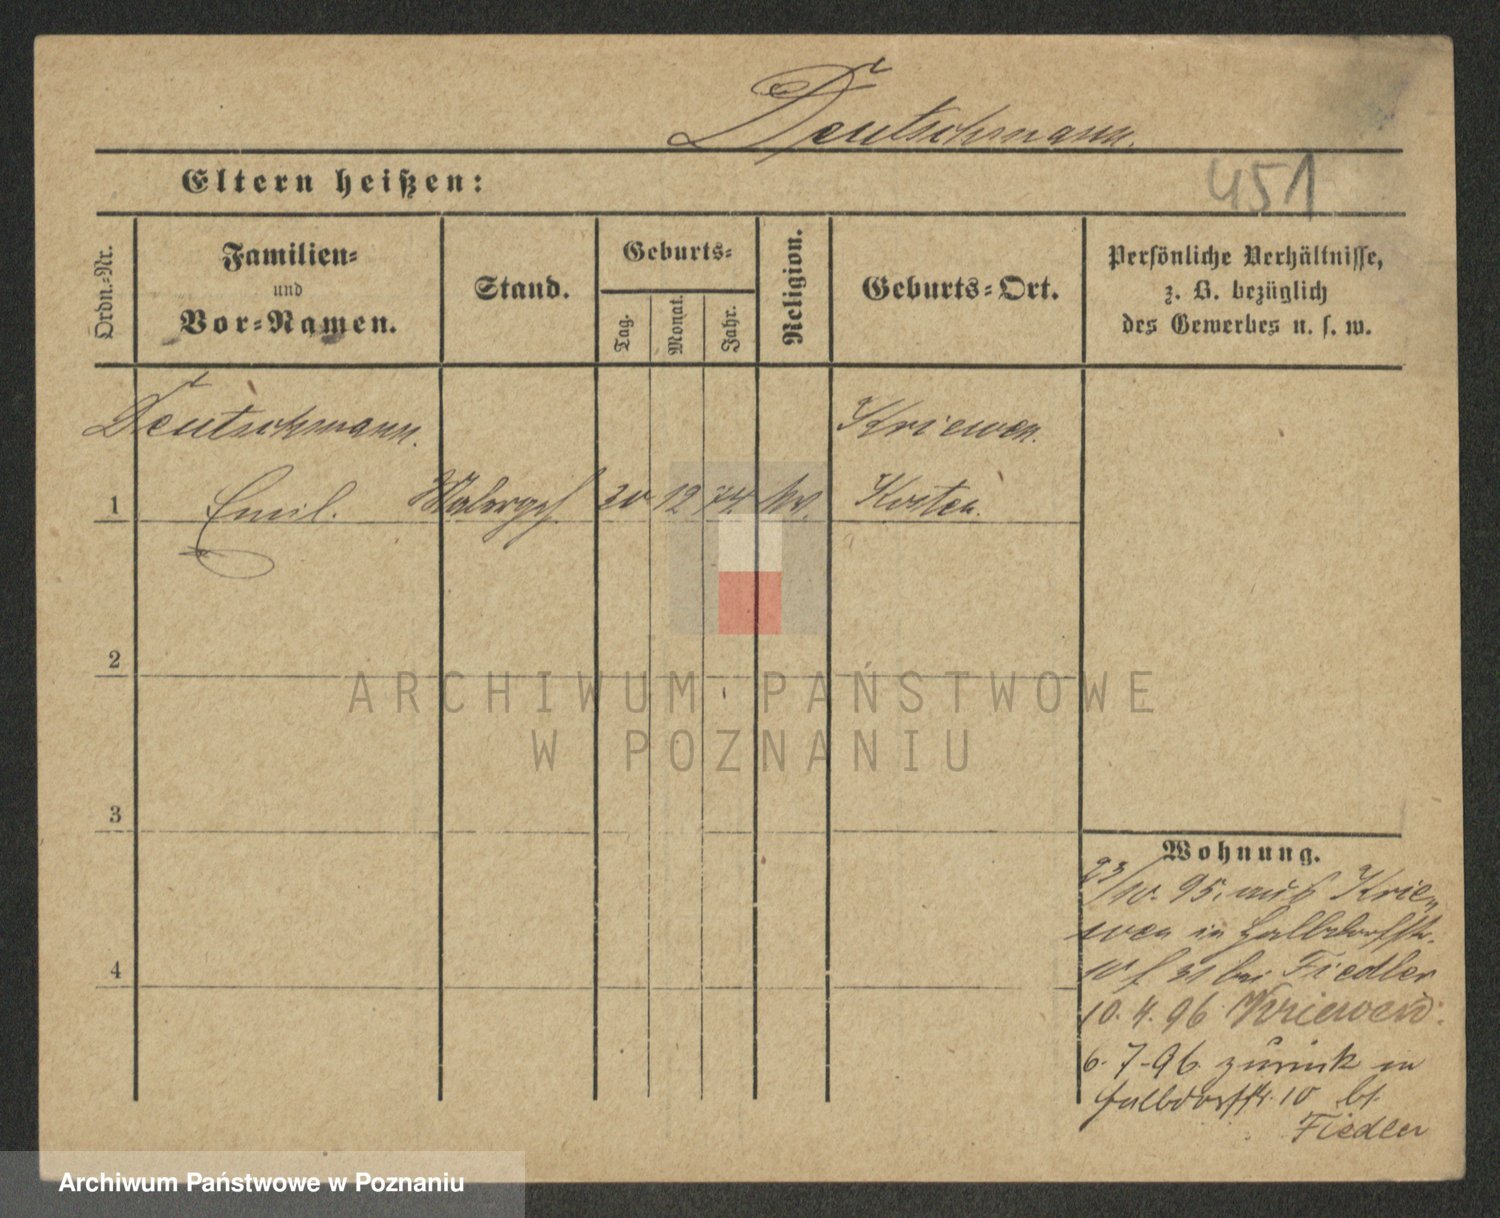 Deutschmann.
Eltern heißen:
451
Ordn.-Nr.
Familien-
und
Vor-Namen.
Stand.
Geburts-
Tag.
Monat.
Jahr.
Religion.
Geburts-Ort.
Persönliche Verhältnisse,
z. B. bezüglich
des Gewerbes u. s. w.
Deutschmann. Kriewen.
1 Emil. Malergeh 30 12 74. Kosten.
2
ARCHIWUM PAŃSTWOWE
W POZNANIU
3
4
Wohnung.
23/10. 95. aus Krie-
wen in Halbdorfstr.
10 bei Fiedler
10. 4. 96 Kriewen.
6. 7. 96 zurück in
Halbdorfstr. 10 bt.
Fiedler
Archiwum Państwowe w Poznaniu